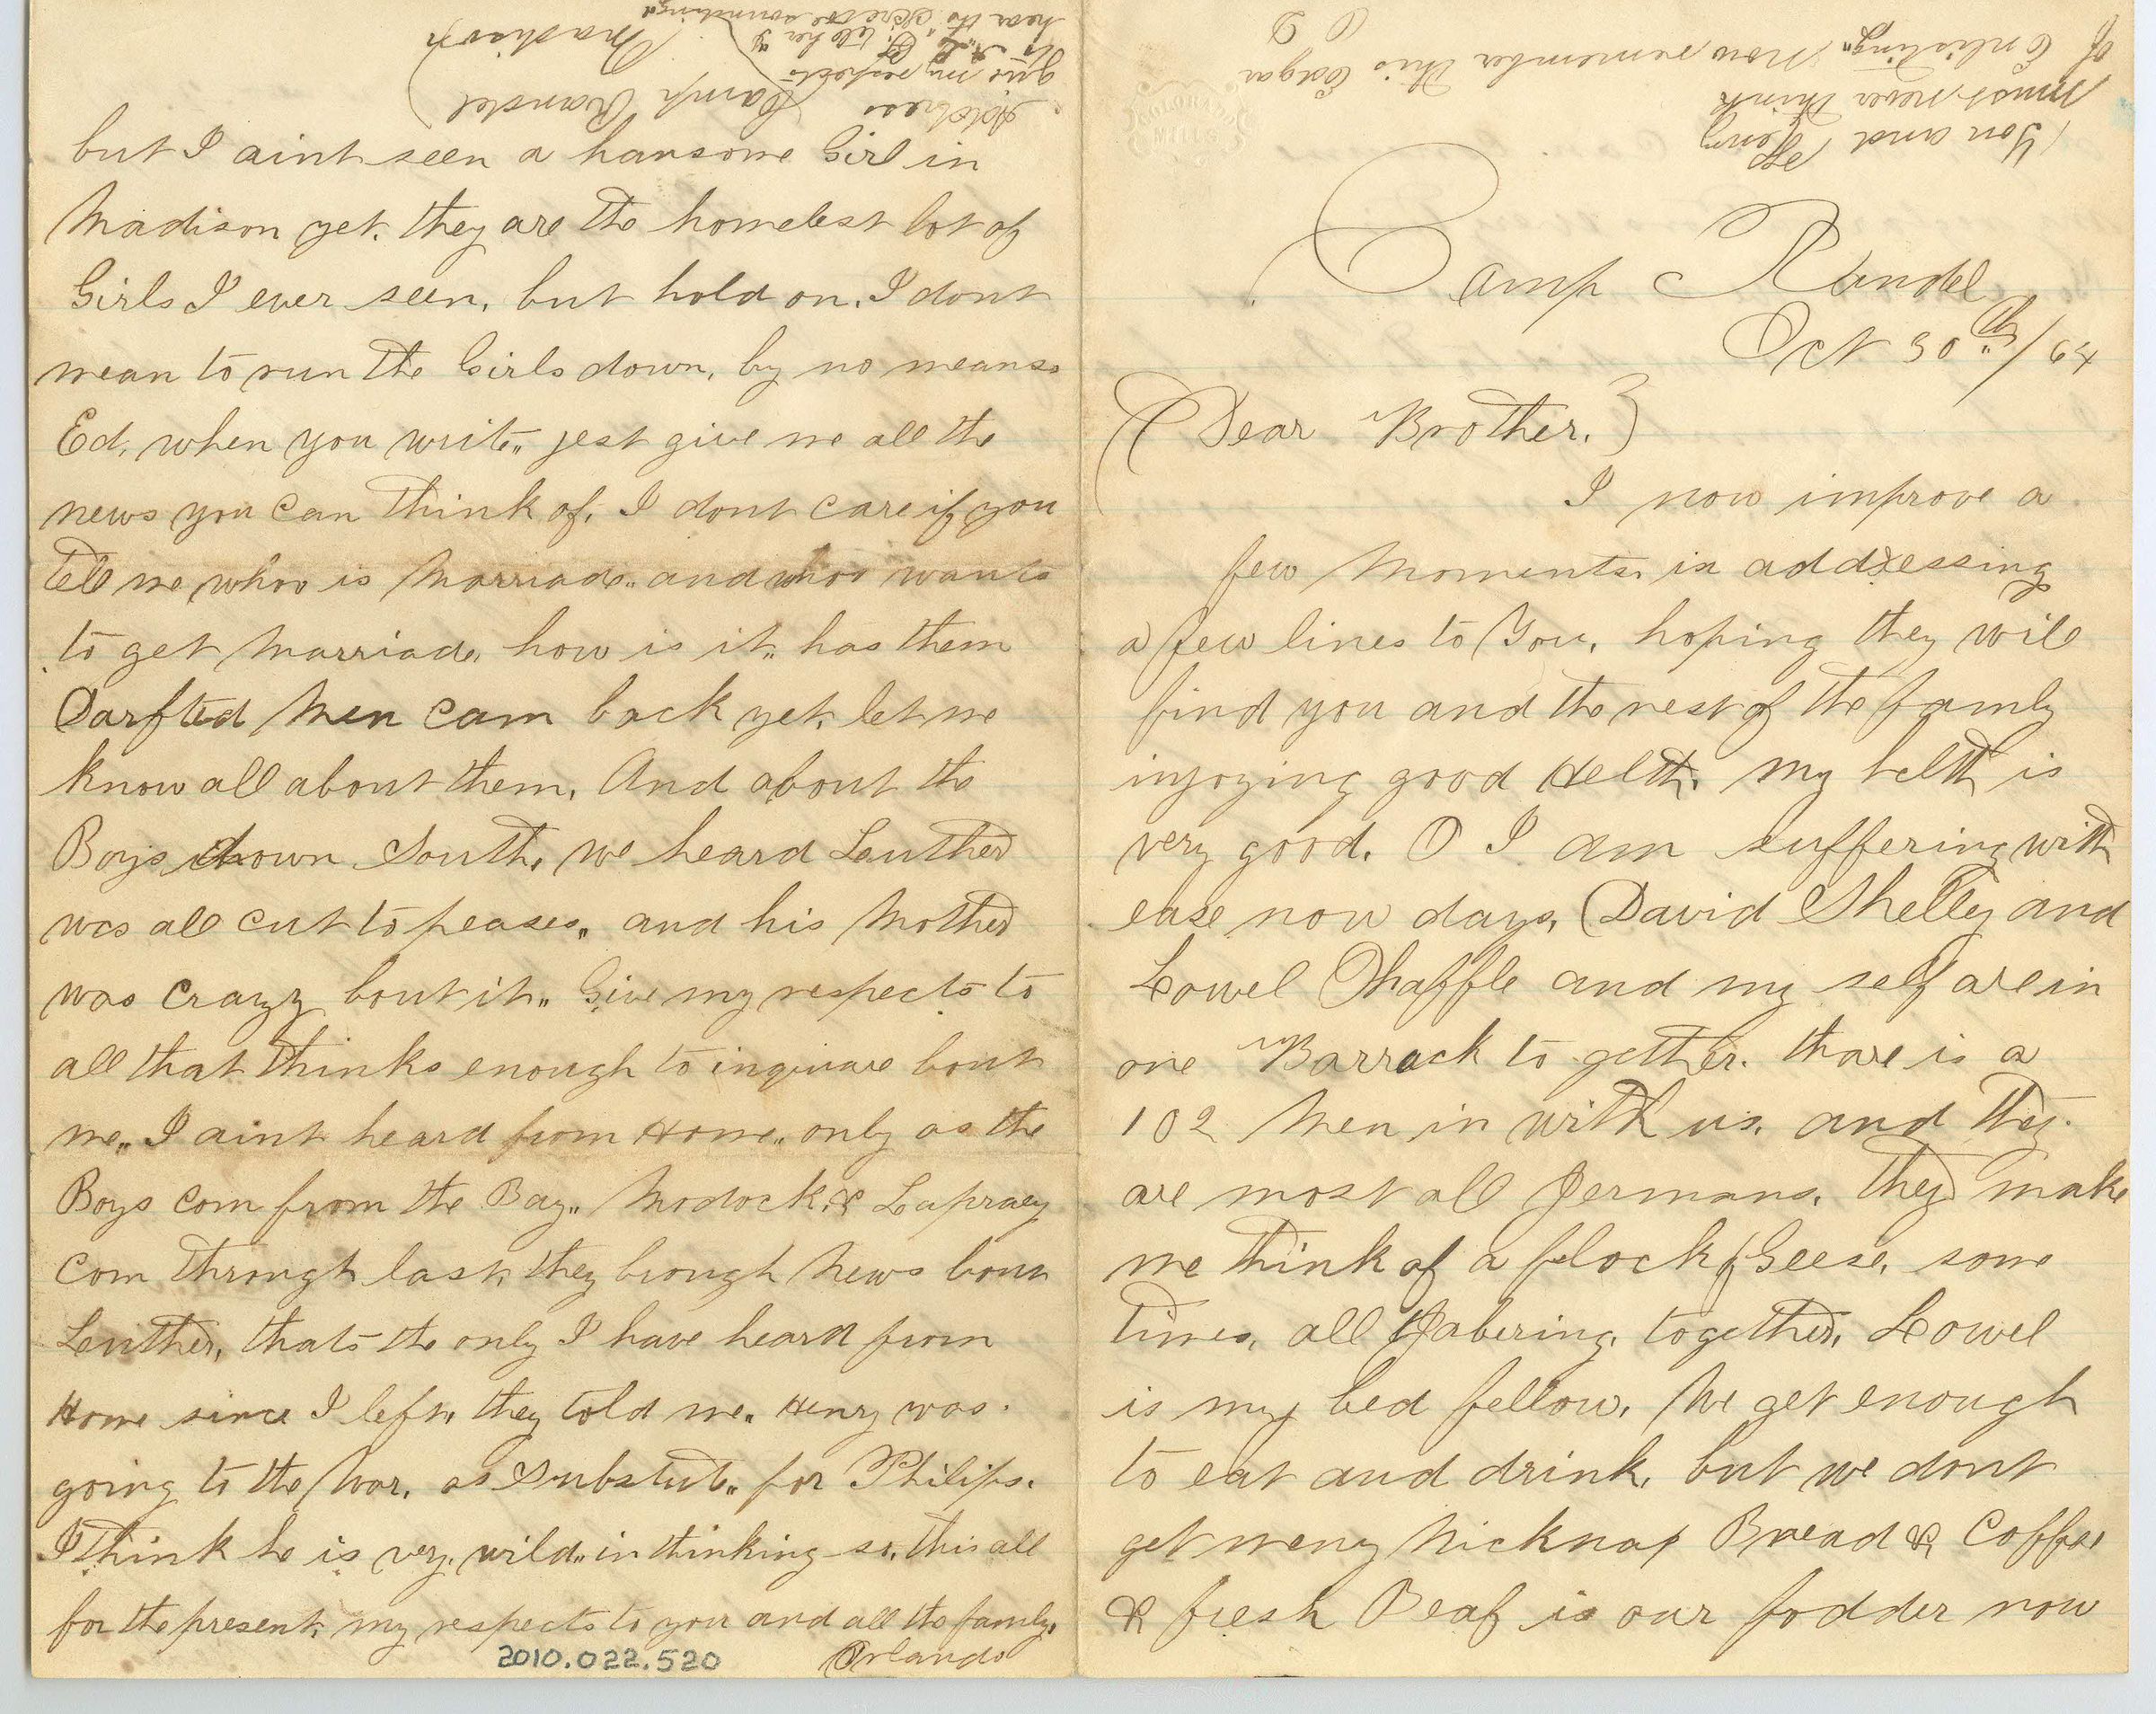 Camp Randel
Oct 30th/64
Dear Brother.
I now improve a
few Moments. in addressing
a few lines to You, hoping they will
find you and the rest of the family
injoying good Helth. my helth is
very good. O I am suffering with
ease now days, David Shelley and
Lowel Shaffle and my self are in
one Barrack to gether. thare is a
102 Men in with us. and they
are most all Jermans. they make
me think of a flock of Geese. some
times, all Jabering. together, Lowel
is my bed fellow. We get enough
to eat and drink, but we dont
get meny Nicknax Bread & Coffee
& fresh Beaf is our fodder now
but I aint seen a hansome Girl in
Madison yet. they are the homelest lot of
Girls I ever seen. but hold on. I dont
mean to run the Girls down, by no means.
Ed. when you write,, jest give me all the
news you can think of. I dont care if you
tell me whoo is Marriade,, and whoo wants
to get Marriade, how is it,, has them
Darfted Men cam back yet. let me
know all about them, And about the
Boys down South. we heard Leuther
was all cut to peases,, and his Mother
was Crazy bout it,, Give my respects to
all that thinks enough to inquare bout
me,, I aint heard from Home,, only as the
Boys com from the Bay,, Modock, & Lapraey
com through last. they brough News bout
Leuther, thats the only I have heard from
Home since I left. they told me. Henry was.
going to the War. as Substut,, for Philips.
I think he is very. wild,, in thinking so. this all
for the present. my respects to you and all the family.
Orlando
2010.022.520
Address
Camp Randel
Madison
give my respects
to A. L.
hear the
You and Henry
must never think
of Enlisting,, Now remember this Edgar
COLORADO
MILLS